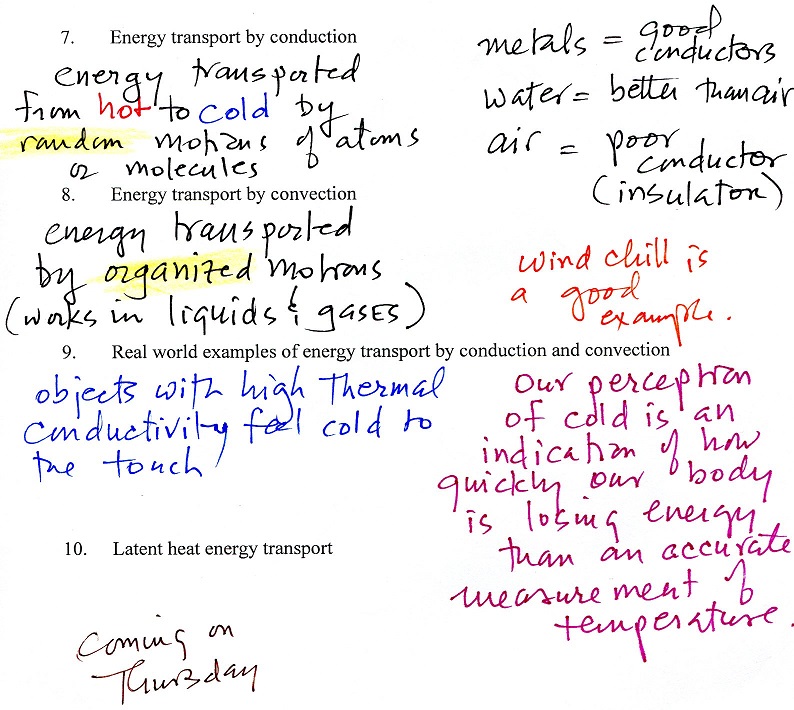 7. Energy transport by conduction
energy transported
from hot to cold by
random motions of atoms
or molecules
metals = good
conductors
water = better than air
air = poor
conductor
(insulator)
8. Energy transport by convection
energy transported
by organized motions
(works in liquids & gases)
wind chill is
a good
example.
9. Real world examples of energy transport by conduction and convection
objects with high thermal
conductivity feel cold to
the touch
Our perception
of cold is an
indication of how
quickly our body
is losing energy
than an accurate
measurement of
temperature.
10. Latent heat energy transport
Coming on
Thursday